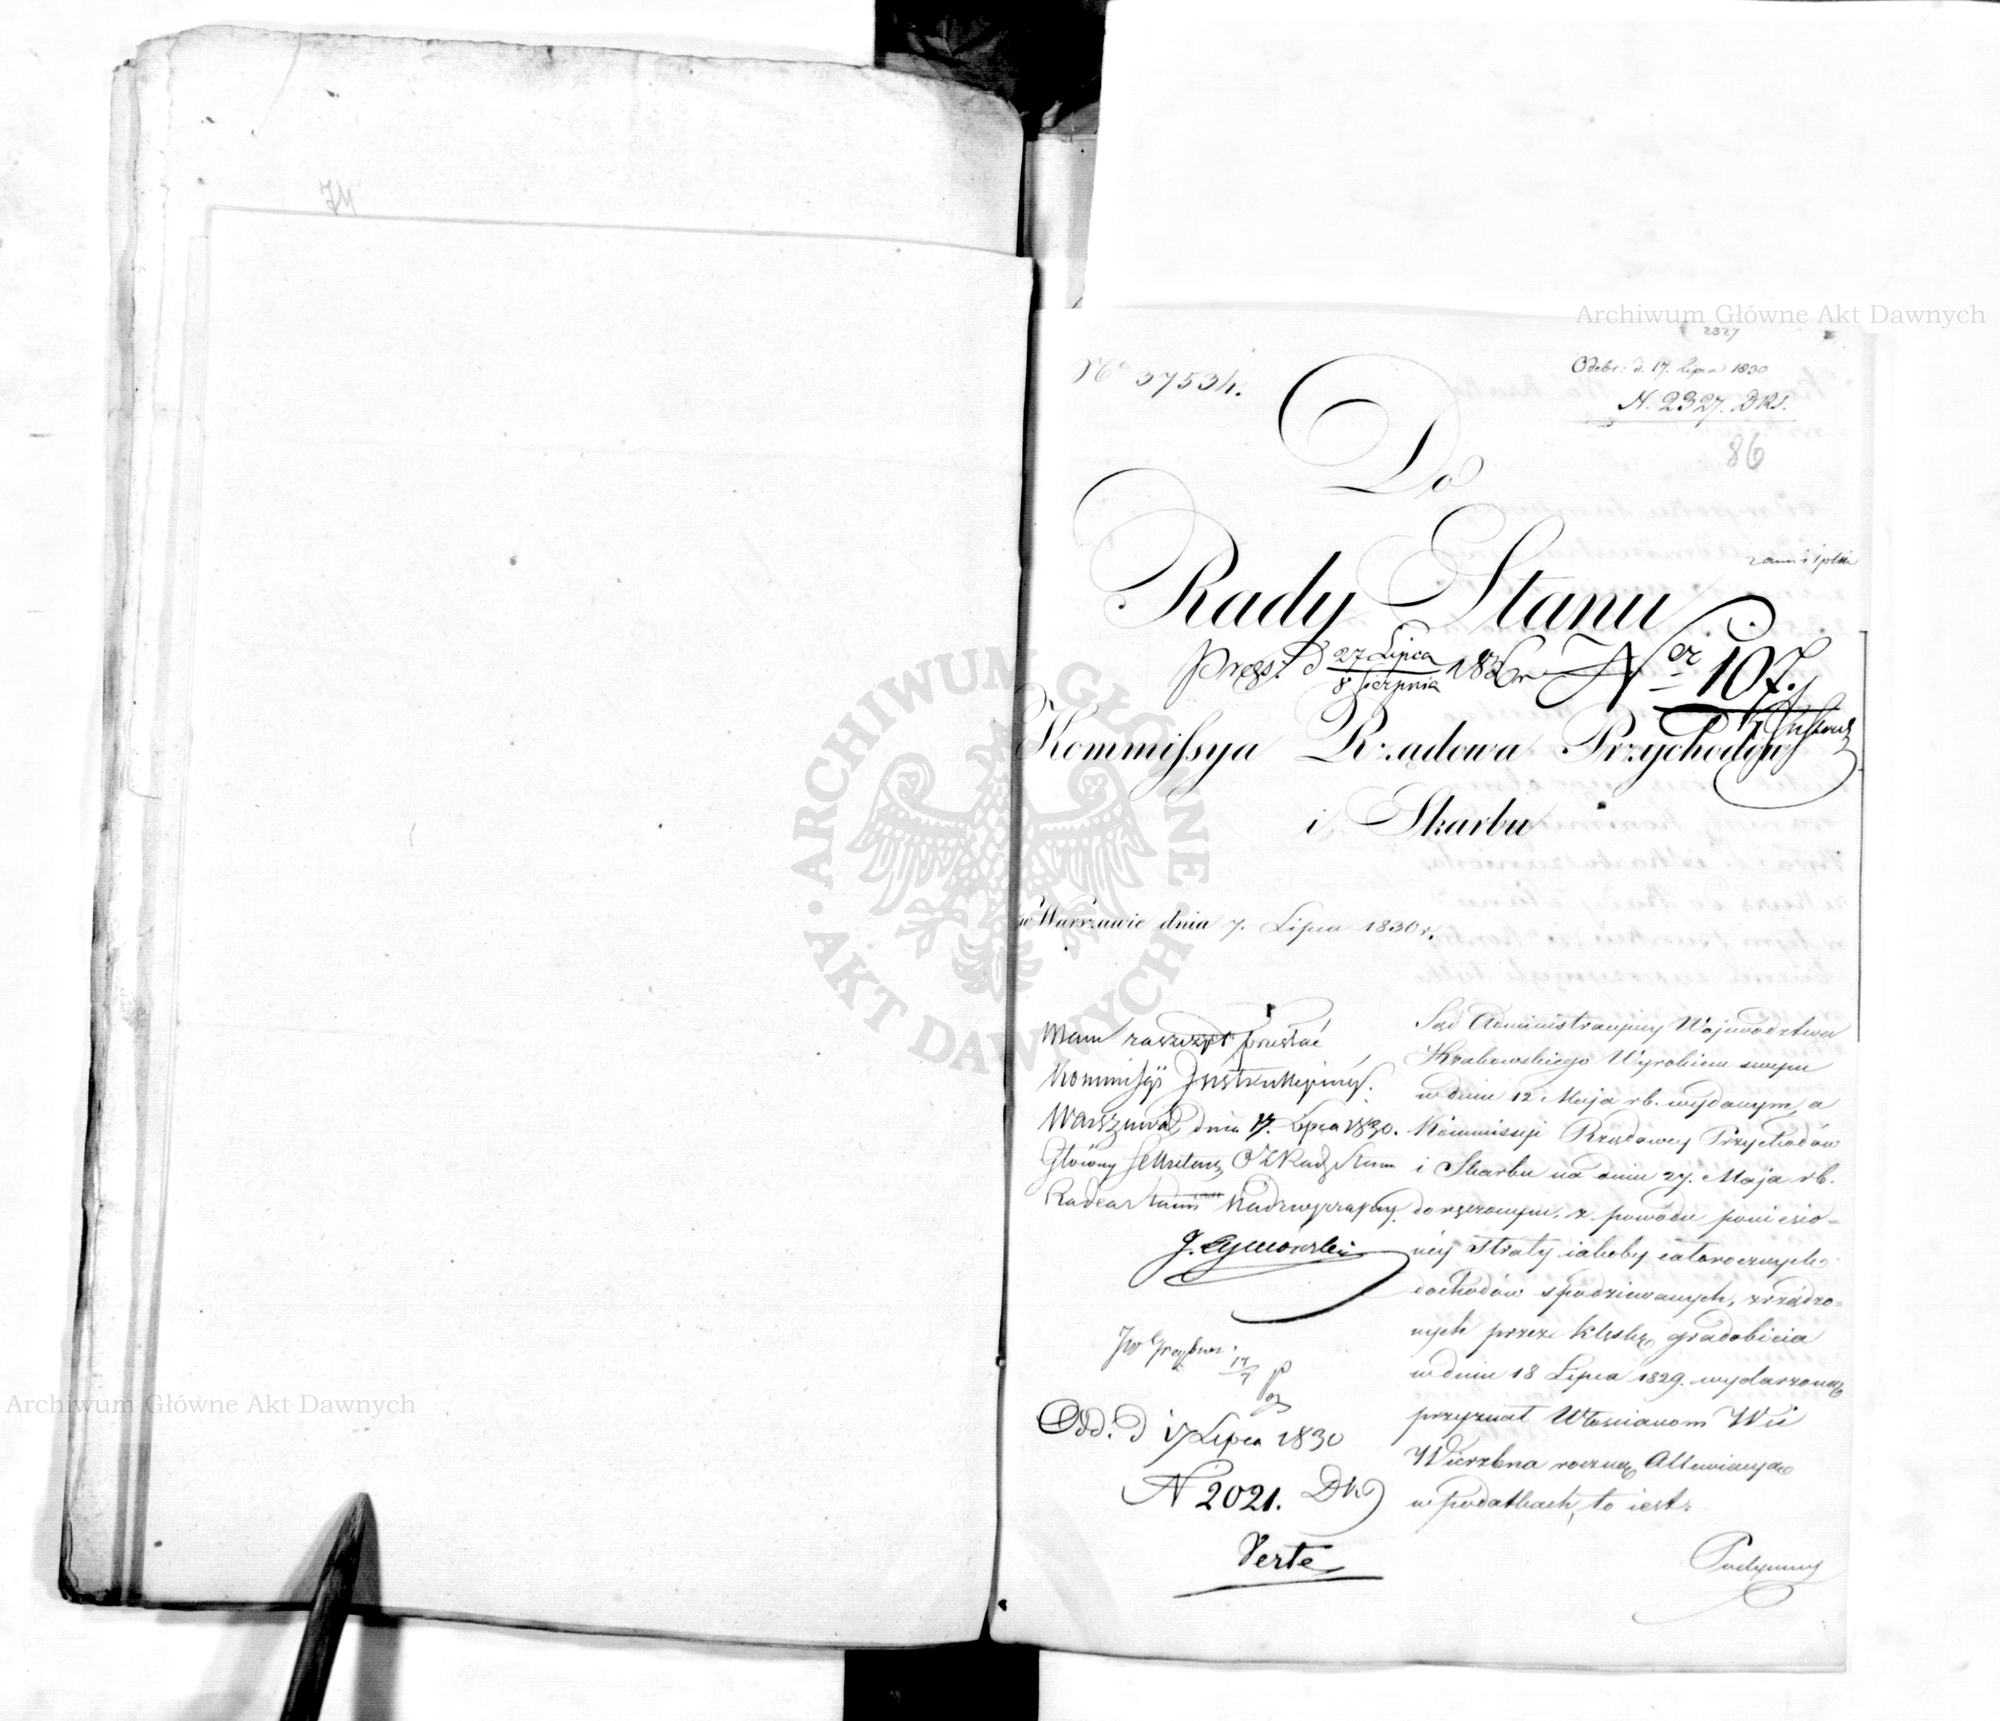 74
Archiwum Główne Akt Dawnych
2327
No 37534.
Odebr: d. 17. Lipca 1830
N. 2327. DKS.
86
Do
Rady Stanu
27 Lipca
8 Sierpnia
Nr 107.
Kommissya Rządowa Przychodów
i Skarbu
w Warszawie dnia 7. Lipca 1830 r.
Mam zaszczyt przesłać
Kommissyi Instrukcyiney.
Warszawa dnia 17. Lipca 1830.
Główny Sekretarz Rady Stanu
Radca Stanu Nadzwyczajny.
17
7
Odd. d 17 Lipca 1830
N 2021.
Verte
Sąd Administracyiny Województwa
Krakowskiego Wyrokiem swym
w dniu 12 Maja rb. wydanym, a
Kommissyi Rządowey Przychodów
i Skarbu na dniu 27. Maja rb.
doręczonym, z powodu poniesio-
ney straty iakoby całorocznych
dochodów spodziewanych, zrządzo-
nych przez klęskę gradobicia
w dniu 18 Lipca 1829. wydarzoną
przyznał Włościanom Wsi
Wierzbna roczną Allewiacyą
w podatkach, to iest:
ARCHIWUM GŁÓWNE
AKT DAWNYCH
Archiwum Główne Akt Dawnych